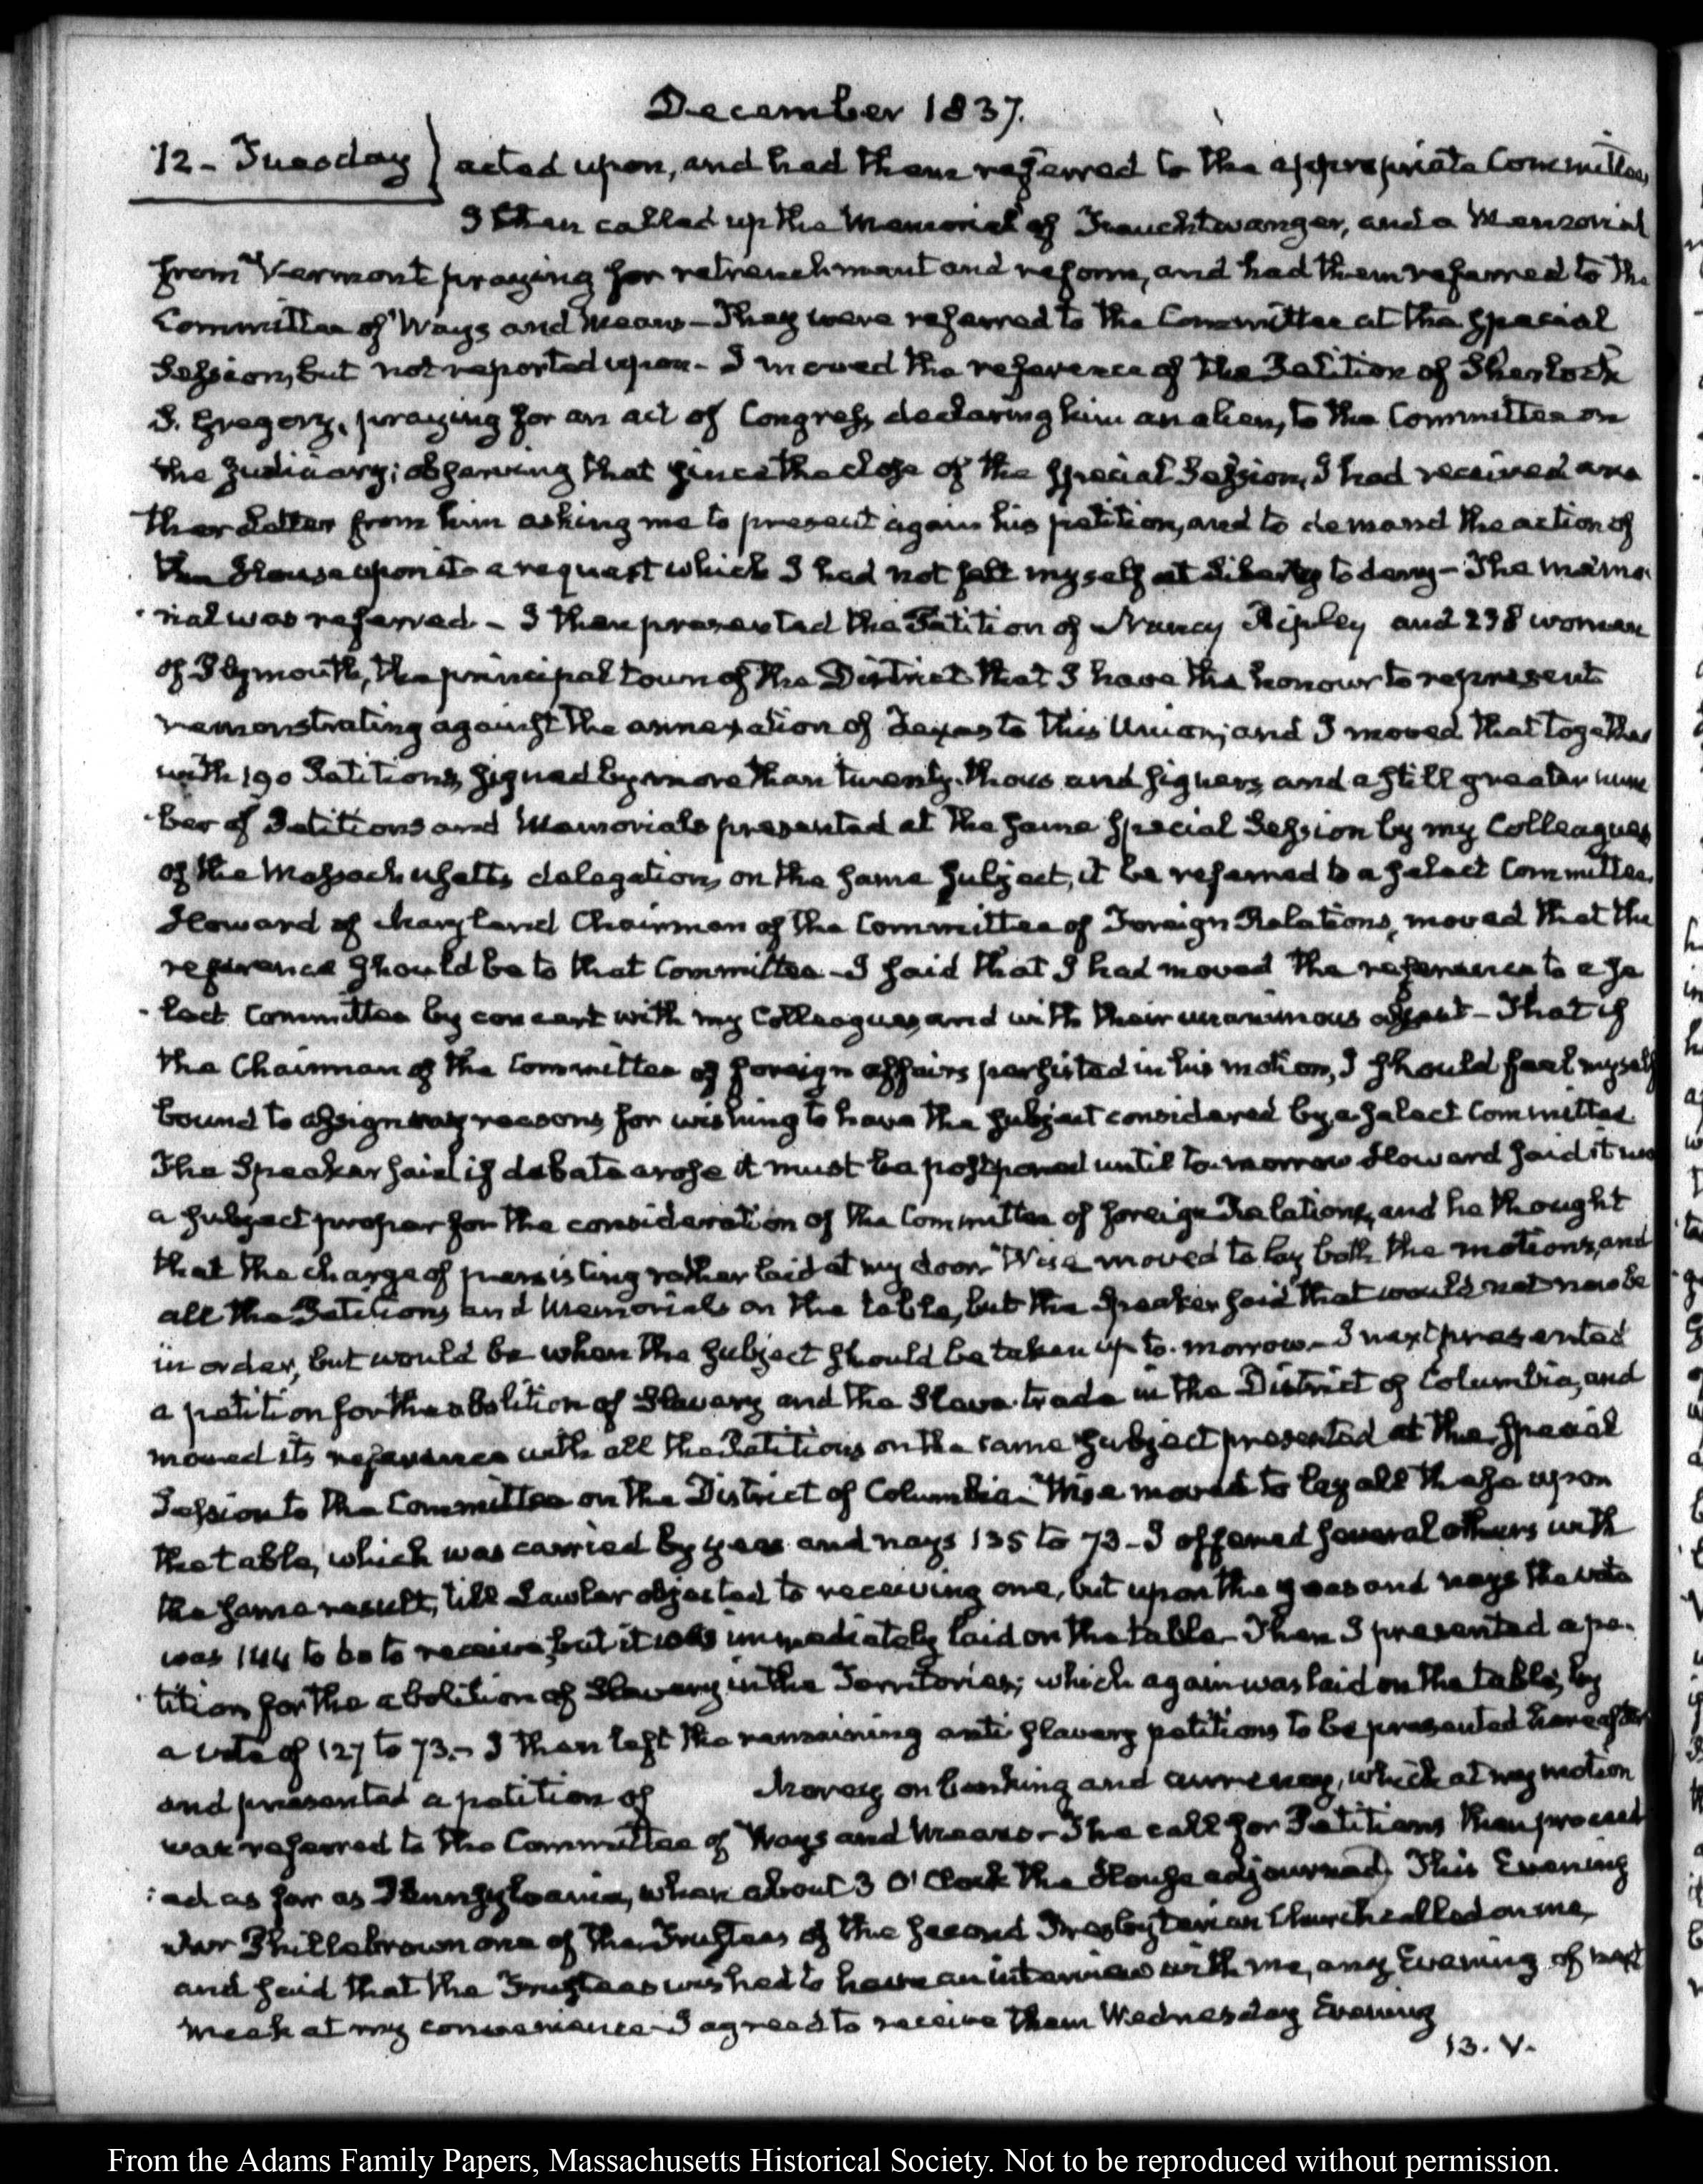 December 1837.
12 - Tuesday } acted upon, and had them referred to the appropriate Committees
I then called up the Memorial of Feuchtwanger, and a Memorial
from Vermont praying for retrenchment and reform, and had them referred to the
Committee of Ways and Means - They were referred to the Committee at the special
Session, but not reported upon - I moved the reference of the Petition of Sherlock
S. Gregory, praying for an act of Congress declaring him an alien, to the Committee on
the Judiciary; observing that since the close of the special Session, I had received ano
ther Letter from him asking me to present again his petition, and to demand the action of
the House upon it - a request which I had not felt myself at liberty to deny - The memo-
-rial was referred - I then presented the Petition of Nancy Ripley and 238 women
of Plymouth, the principal town of the District that I have the honour to represent
remonstrating against the annexation of Texas to this Union; and I moved that together
with 190 Petitions, signed by more than twenty-thousand signers, and a still greater num
-ber of Petitions and Memorials presented at the same special Session by my Colleagues
of the Massachusetts delegation, on the same subject, it be referred to a select Committee.
Howard of Maryland Chairman of the Committee of Foreign Relations, moved that the
reference should be to that Committee - I said that I had moved the reference to a se
-lect Committee by concert with my Colleagues, and with their unanimous assent - That if
the Chairman of the Committee of foreign affairs persisted in his motion, I should feel myself
bound to assign my reasons for wishing to have the subject considered by a select Committee
The Speaker said if debate arose it must be postponed until to-morrow Howard said it was
a subject proper for the consideration of the Committee of foreign Relations, and he thought
that the charge of persisting rather laid at my door Wise moved to lay both the motions, and
all the Petitions and Memorials on the table, but the Speaker said that would not now be
in order, but would be when the subject should be taken up to-morrow - I next presented
a petition for the abolition of Slavery and the Slave-trade in the District of Columbia, and
moved its reference with all the Petitions on the same subject presented at the special
Session to the Committee on the District of Columbia. Wise moved to lay all these upon
the table, which was carried by yeas and nays 135 to 73 - I offered several others with
the same result, till Lawler objected to receiving one, but upon the yeas and nays the vote
was 144 to 60 to receive, but it was immediately laid on the table - Then I presented a pe-
-tition for the abolition of Slavery in the Territories; which again was laid on the table, by
a vote of 127 to 73. - I then left the remaining anti slavery petitions to be presented hereafter
and presented a petition of Morey on banking and currency, which at my motion
was referred to the Committee of Ways and Means - The call for Petitions then proceed
:ed as far as Pennsylvania, when about 3 O'Clock the House adjourned. This Evening
Mr Phillebrown one of the Trustees of the second Presbyterian Church called on me,
and said that the Trustees wished to have an interview with me, any Evening of next
week at my convenience - I agreed to receive them Wednesday Evening
13. V.
From the Adams Family Papers, Massachusetts Historical Society. Not to be reproduced without permission.